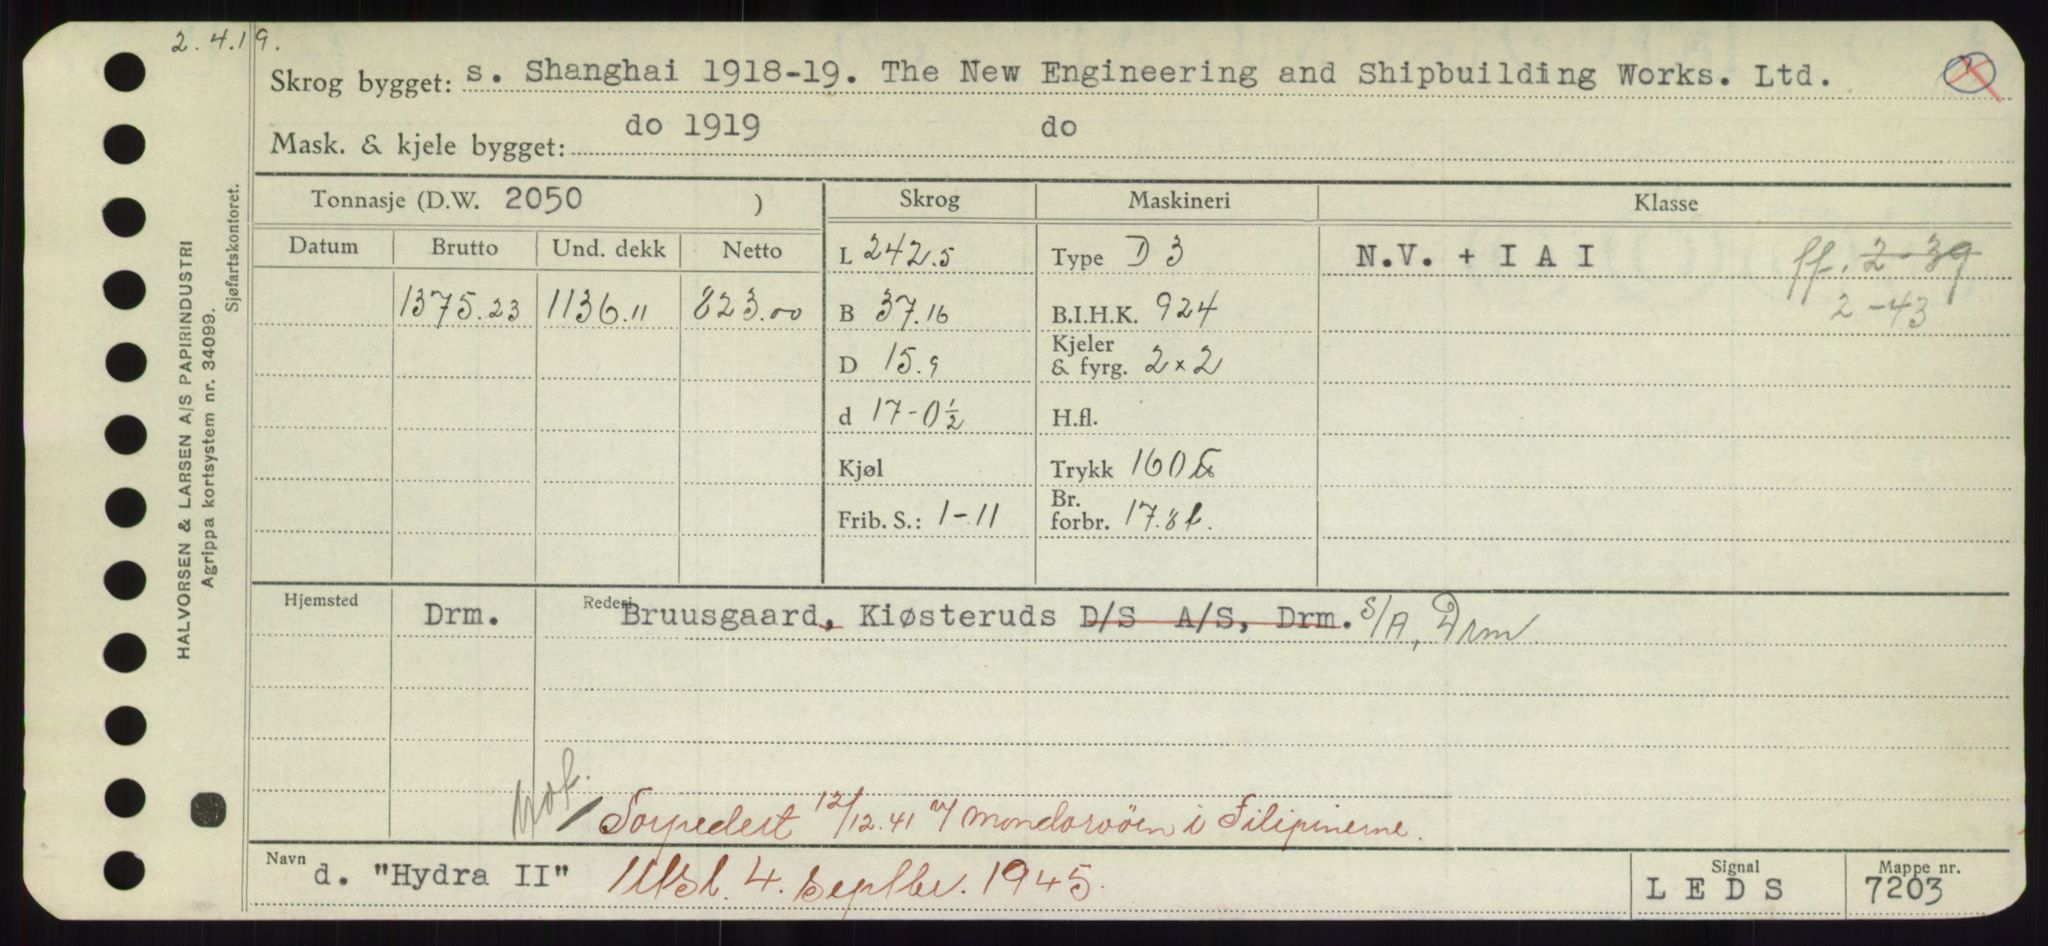 2.4.19.
Skrog bygget: s. Shanghai 1918-19. The New Engineering and Shipbuilding Works. Ltd.
Mask. & kjele bygget: do 1919 do
Tonnasje (D.W. 2050 ) Skrog Maskineri Klasse
Datum Brutto Und. dekk Netto L 242.5 Type D 3 N.V. + I A I ff. 2-39
1375.23 1136.11 823.00 B 37.16 B.I.H.K. 924 2-43
D 15.9 Kjeler & fyrg. 2 × 2
d 17-0½ H.fl.
Kjøl Trykk 160
Frib. S.: 1-11 Br. forbr. 17.8 t.
Hjemsted Drm. Rederi Bruusgaard, Kiøsteruds D/S A/S, Drm. S/A, Drm
Torpedert 12/12.41 v/ Mondorøen i Filipinerne.
Navn d. "Hydra II" Utsl. 4. septbr. 1945. Signal L E D S Mappe nr. 7203
HALVORSEN & LARSEN A/S PAPIRINDUSTRI
Agrippa kortsystem nr. 34099.
Sjøfartskontoret.